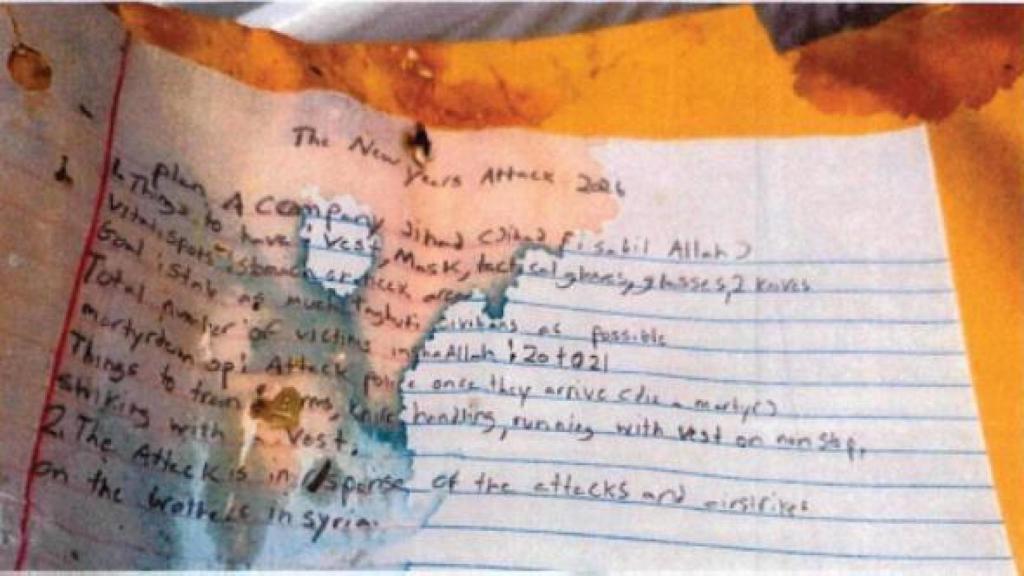 The New Years Attack 2026
plan A company Jihad (Jihad fisabil Allah)
1. Things to have: vest, Mask, tactical gloves, glasses, 2 knives
vital spots: stomach or neck area
Goal: stab as much taghuti civilians as possible
Total number of victims inshaAllah: 20 to 21
martyrdom op: Attack police once they arrive (die a martyr)
Things to train: Arms, knife handling, running with vest on non stop,
striking with a vest.
2. The Attack is in of the attacks and airstrikes
on the brothers in syria.